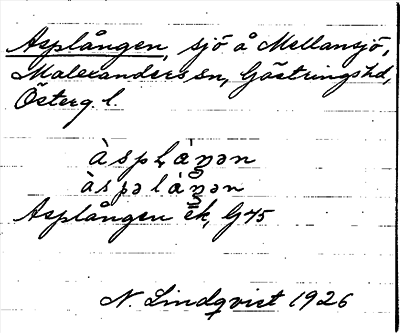 Asplången, sjö å Mellansjö,
Malexanders sn, Göstringshd,
Österg. l.
àspɫáŋən
àspəláŋən
Asplången ek, G45
N. Lindqvist 1926